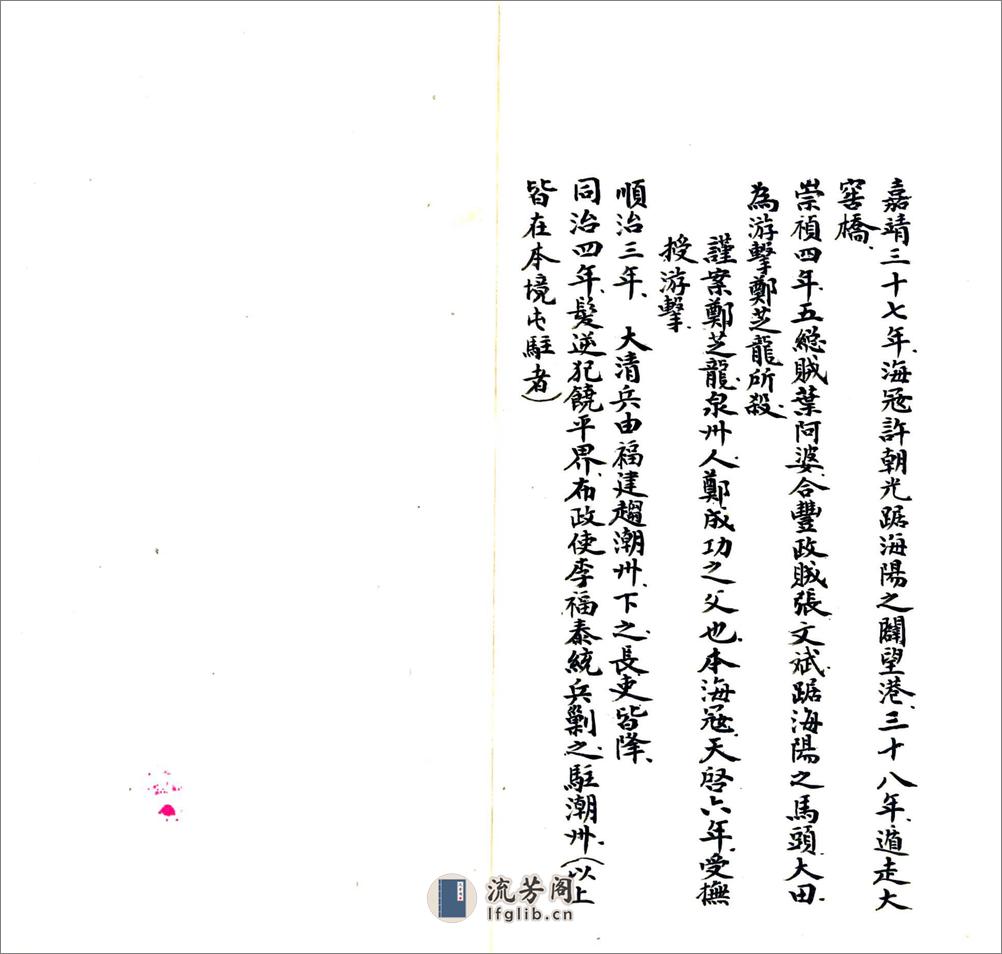 嘉靖三十七年、海寇許朝光踞海陽之闢望港、三十八年、遁走大
窖橋、
崇禎四年、五總賊葉阿婆、合豐政賊張文斌踞海陽之馬頭大田、
為游擊鄭芝龍所殺、
謹案鄭芝龍泉州人鄭成功之父也、本海寇、天啓六年、受撫
授游擊、
順治三年、　大清兵由福建趨潮州、下之、長吏皆降、
同治四年、髮逆犯饒平界、布政使李福泰統兵剿之、駐潮州、（以上
皆在本境屯駐者）
流芳阁
lfglib.cn